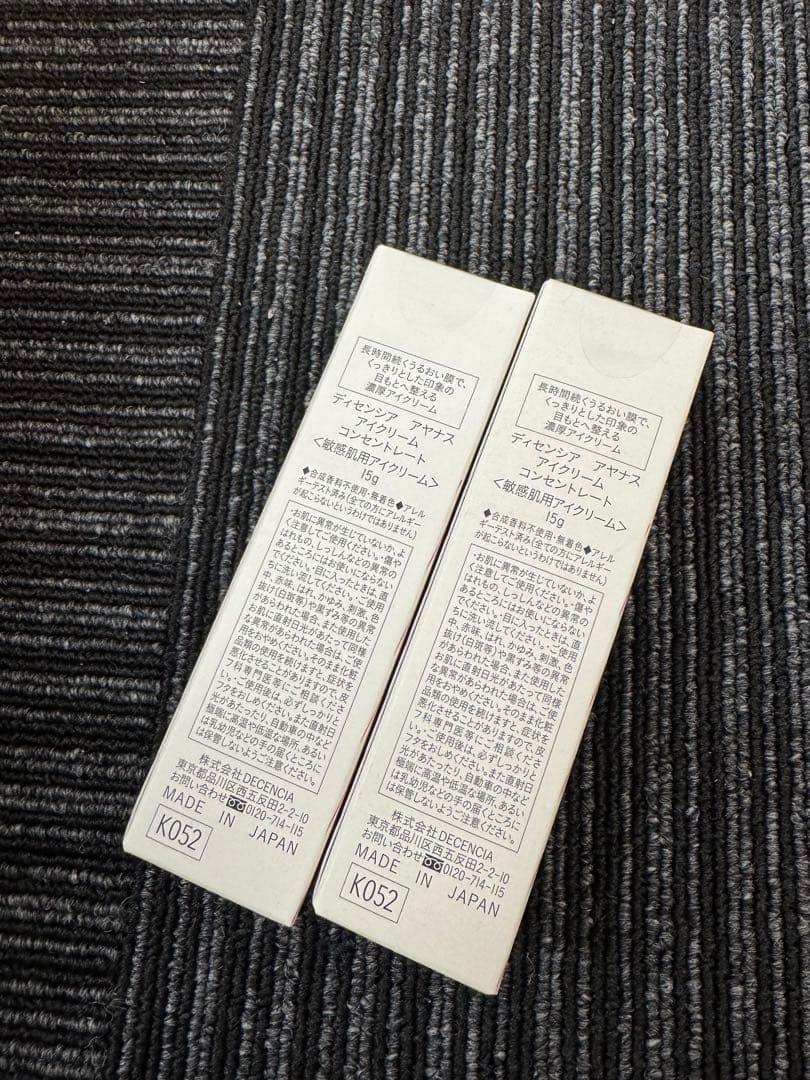 長時間続くうるおい膜で、
くっきりとした印象の
目もとへ整える
濃厚アイクリーム
ディセンシア アヤナス
アイクリーム
コンセントレート
<敏感肌用アイクリーム>
15g
◆合成香料不使用・無着色◆アレル
ギーテスト済み(全ての方にアレルギー
が起こらないというわけではありません)
・お肌に異常が生じていないか、よ
く注意してご使用ください。・傷や
はれもの、しっしんなどの異常の
あるところにはお使いにならない
でください。・目に入ったときは、直
ちに洗い流してください。・ご使用
中、赤味、はれ、かゆみ、刺激、色
抜け(白斑等)や黒ずみ等の異常
があらわれた場合、また使用した
お肌に直射日光があたって同様
な異常があらわれた場合は、ご使
用をおやめください。そのまま化粧
品類の使用を続けますと、症状を
悪化させることがありますので、皮
フ科専門医等にご相談くださ
い。・ご使用後は、必ずしっかりと
フタをおしめください。また直射日
光があたったり、自動車の中など
極端に高温や低温な場所、あるい
は乳幼児などの手の届くところに
は保管しないようご注意ください。
株式会社 DECENCIA
東京都品川区西五反田2-2-10
お問い合わせ 0120-714-115
MADE IN JAPAN
K052
長時間続くうるおい膜で、
くっきりとした印象の
目もとへ整える
濃厚アイクリーム
ディセンシア アヤナス
アイクリーム
コンセントレート
<敏感肌用アイクリーム>
15g
◆合成香料不使用・無着色◆アレル
ギーテスト済み(全ての方にアレルギー
が起こらないというわけではありません)
・お肌に異常が生じていないか、よ
く注意してご使用ください。・傷や
はれもの、しっしんなどの異常の
あるところにはお使いにならない
でください。・目に入ったときは、直
ちに洗い流してください。・ご使用
中、赤味、はれ、かゆみ、刺激、色
抜け(白斑等)や黒ずみ等の異常
があらわれた場合、また使用した
お肌に直射日光があたって同様
な異常があらわれた場合は、ご使
用をおやめください。そのまま化粧
品類の使用を続けますと、症状を
悪化させることがありますので、皮
フ科専門医等にご相談くださ
い。・ご使用後は、必ずしっかりと
フタをおしめください。また直射日
光があたったり、自動車の中など
極端に高温や低温な場所、あるい
は乳幼児などの手の届くところに
は保管しないようご注意ください。
株式会社 DECENCIA
東京都品川区西五反田2-2-10
お問い合わせ 0120-714-115
MADE IN JAPAN
K052